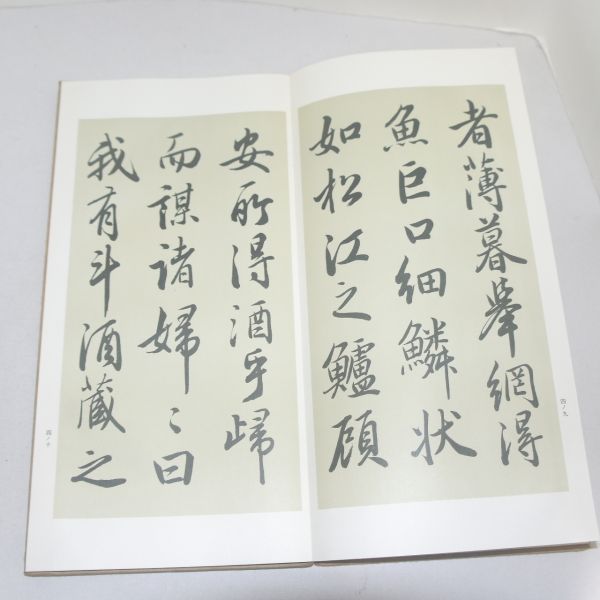 者薄暮舉網得
魚巨口細鱗狀
如松江之鱸顧
安所得酒乎歸
而謀諸婦〻曰
我有斗酒藏之
四ノ九
四ノ十